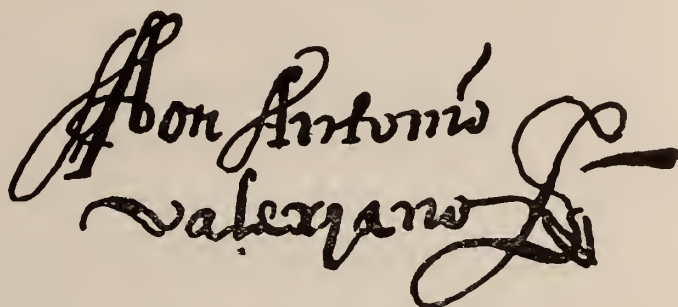 don Antonio
valeriano